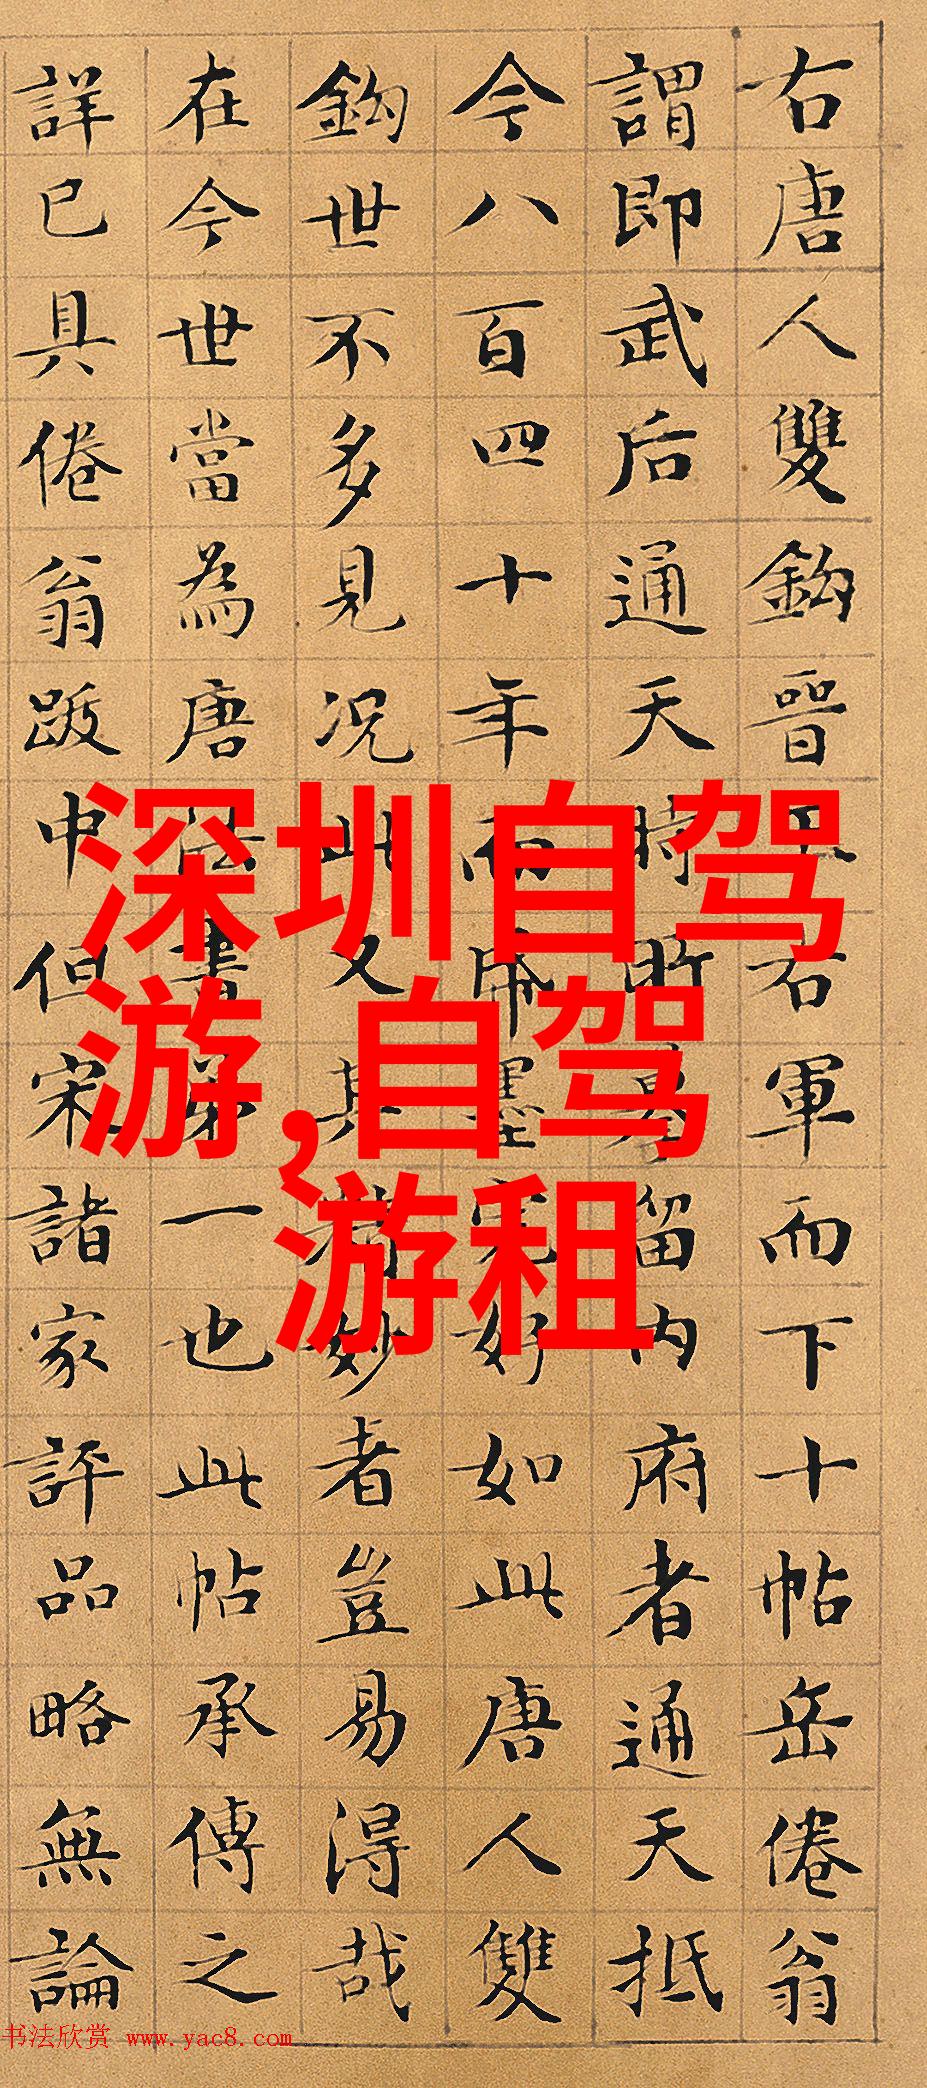 右唐人雙鈎晉王右軍而下十帖岳倦翁
謂即武后通天時所摹留内府者通天抵
今八百四十年而帋墨完好如此唐人雙
鈎世不多見況此又其精妙者豈易得哉
在今世當為唐法書第一也此帖承傳之
詳已具倦翁跋中但宋諸家評品略無論
深圳自驾
游,自驾
游租
书法欣赏 www.yac8.com